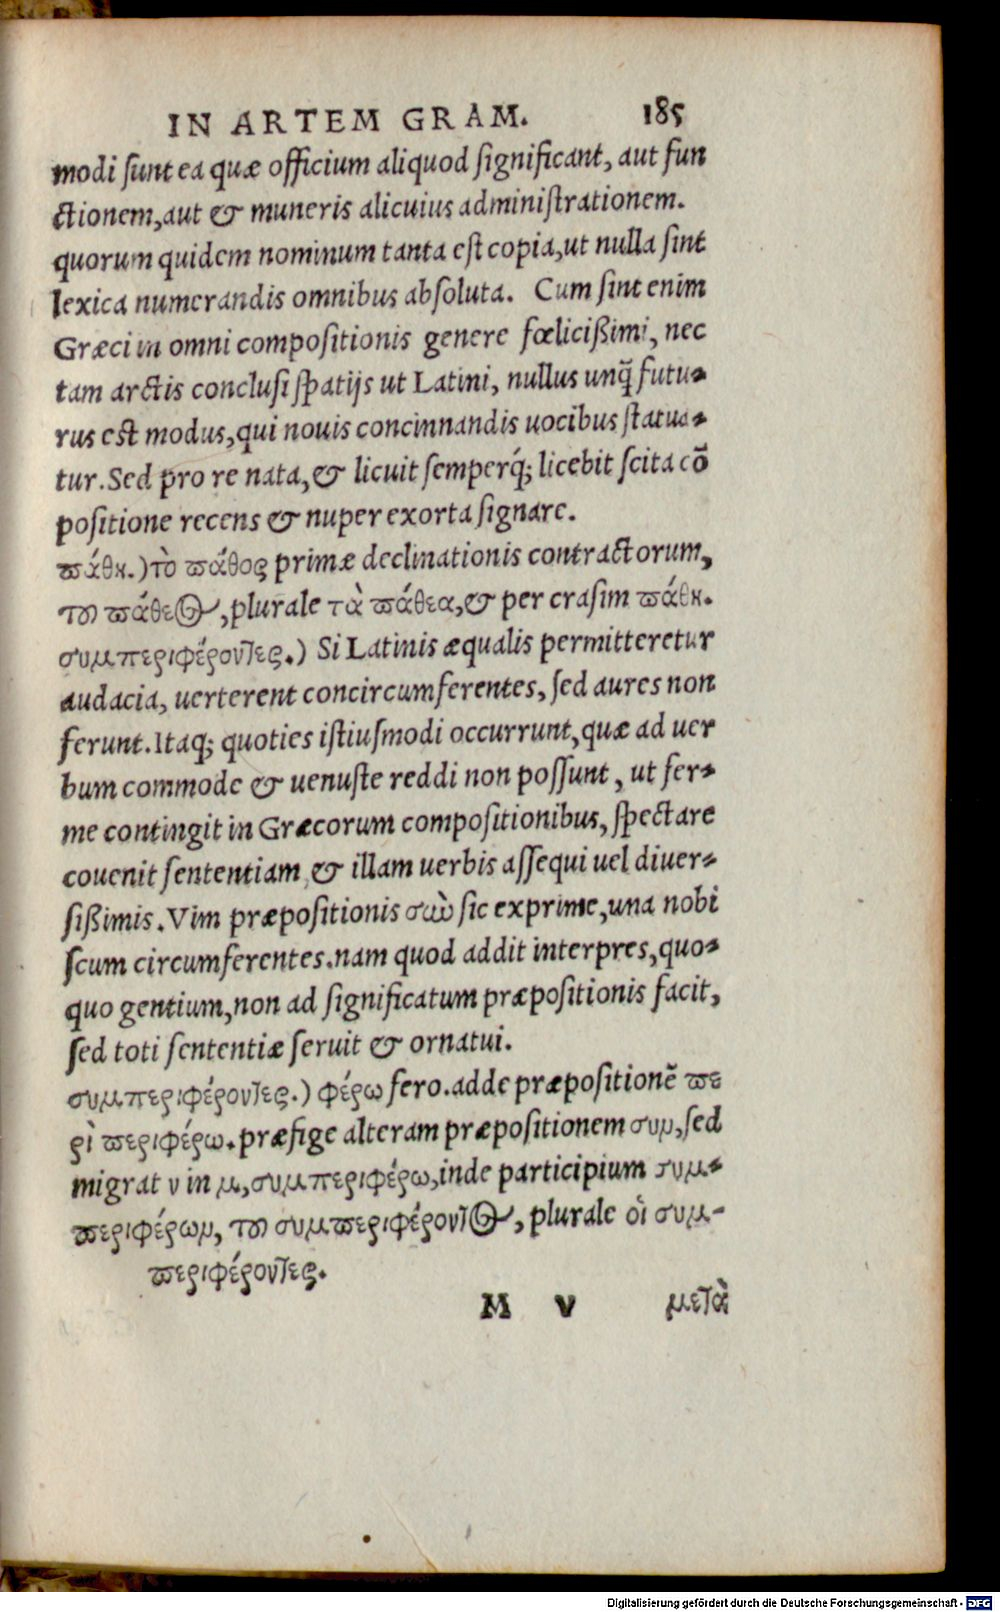 IN ARTEM GRAM. 185
modi sunt ea quæ officium aliquod significant, aut fun
ctionem, aut & muneris alicuius administrationem.
quorum quidem nominum tanta est copia, ut nulla sint
lexica numerandis omnibus absoluta. Cum sint enim
Græci in omni compositionis genere fœlicißimi, nec
tam arctis conclusi spatijs ut Latini, nullus unq̃ futu-
rus est modus, qui nouis concinnandis uocibus statua-
tur. Sed pro re nata, & licuit semperq́; licebit scita cõ
positione recens & nuper exorta signare.
πάθη.) τὸ πάθος primæ declinationis contractorum,
τοῦ πάθεος, plurale τὰ πάθεα, & per crasim πάθη.
συμπεριφέροντες.) Si Latinis æqualis permitteretur
audacia, uerterent concircumferentes, sed aures non
ferunt. Itaq; quoties istiusmodi occurrunt, quæ ad uer
bum commode & uenuste reddi non possunt, ut fer-
me contingit in Græcorum compositionibus, spectare
couenit sententiam & illam uerbis assequi uel diuer-
sißimis. Vim præpositionis σὺν sic exprime, una nobi
scum circumferentes. nam quod addit interpres, quo-
quo gentium, non ad significatum præpositionis facit,
sed toti sententiæ seruit & ornatui.
συμπεριφέροντες.) φέρω fero. adde præpositionẽ πε
ρὶ περιφέρω. præfige alteram præpositionem συν, sed
migrat ν in μ, συμπεριφέρω, inde participium συμ-
περιφέρων, τοῦ συμπεριφέροντος, plurale οἱ συμ-
περιφέροντες.
M v μετὰ
Digitalisierung gefördert durch die Deutsche Forschungsgemeinschaft - DFG